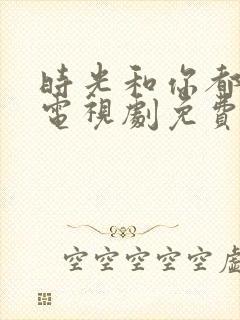 時光和你都
電視劇免費
空空空空空虛